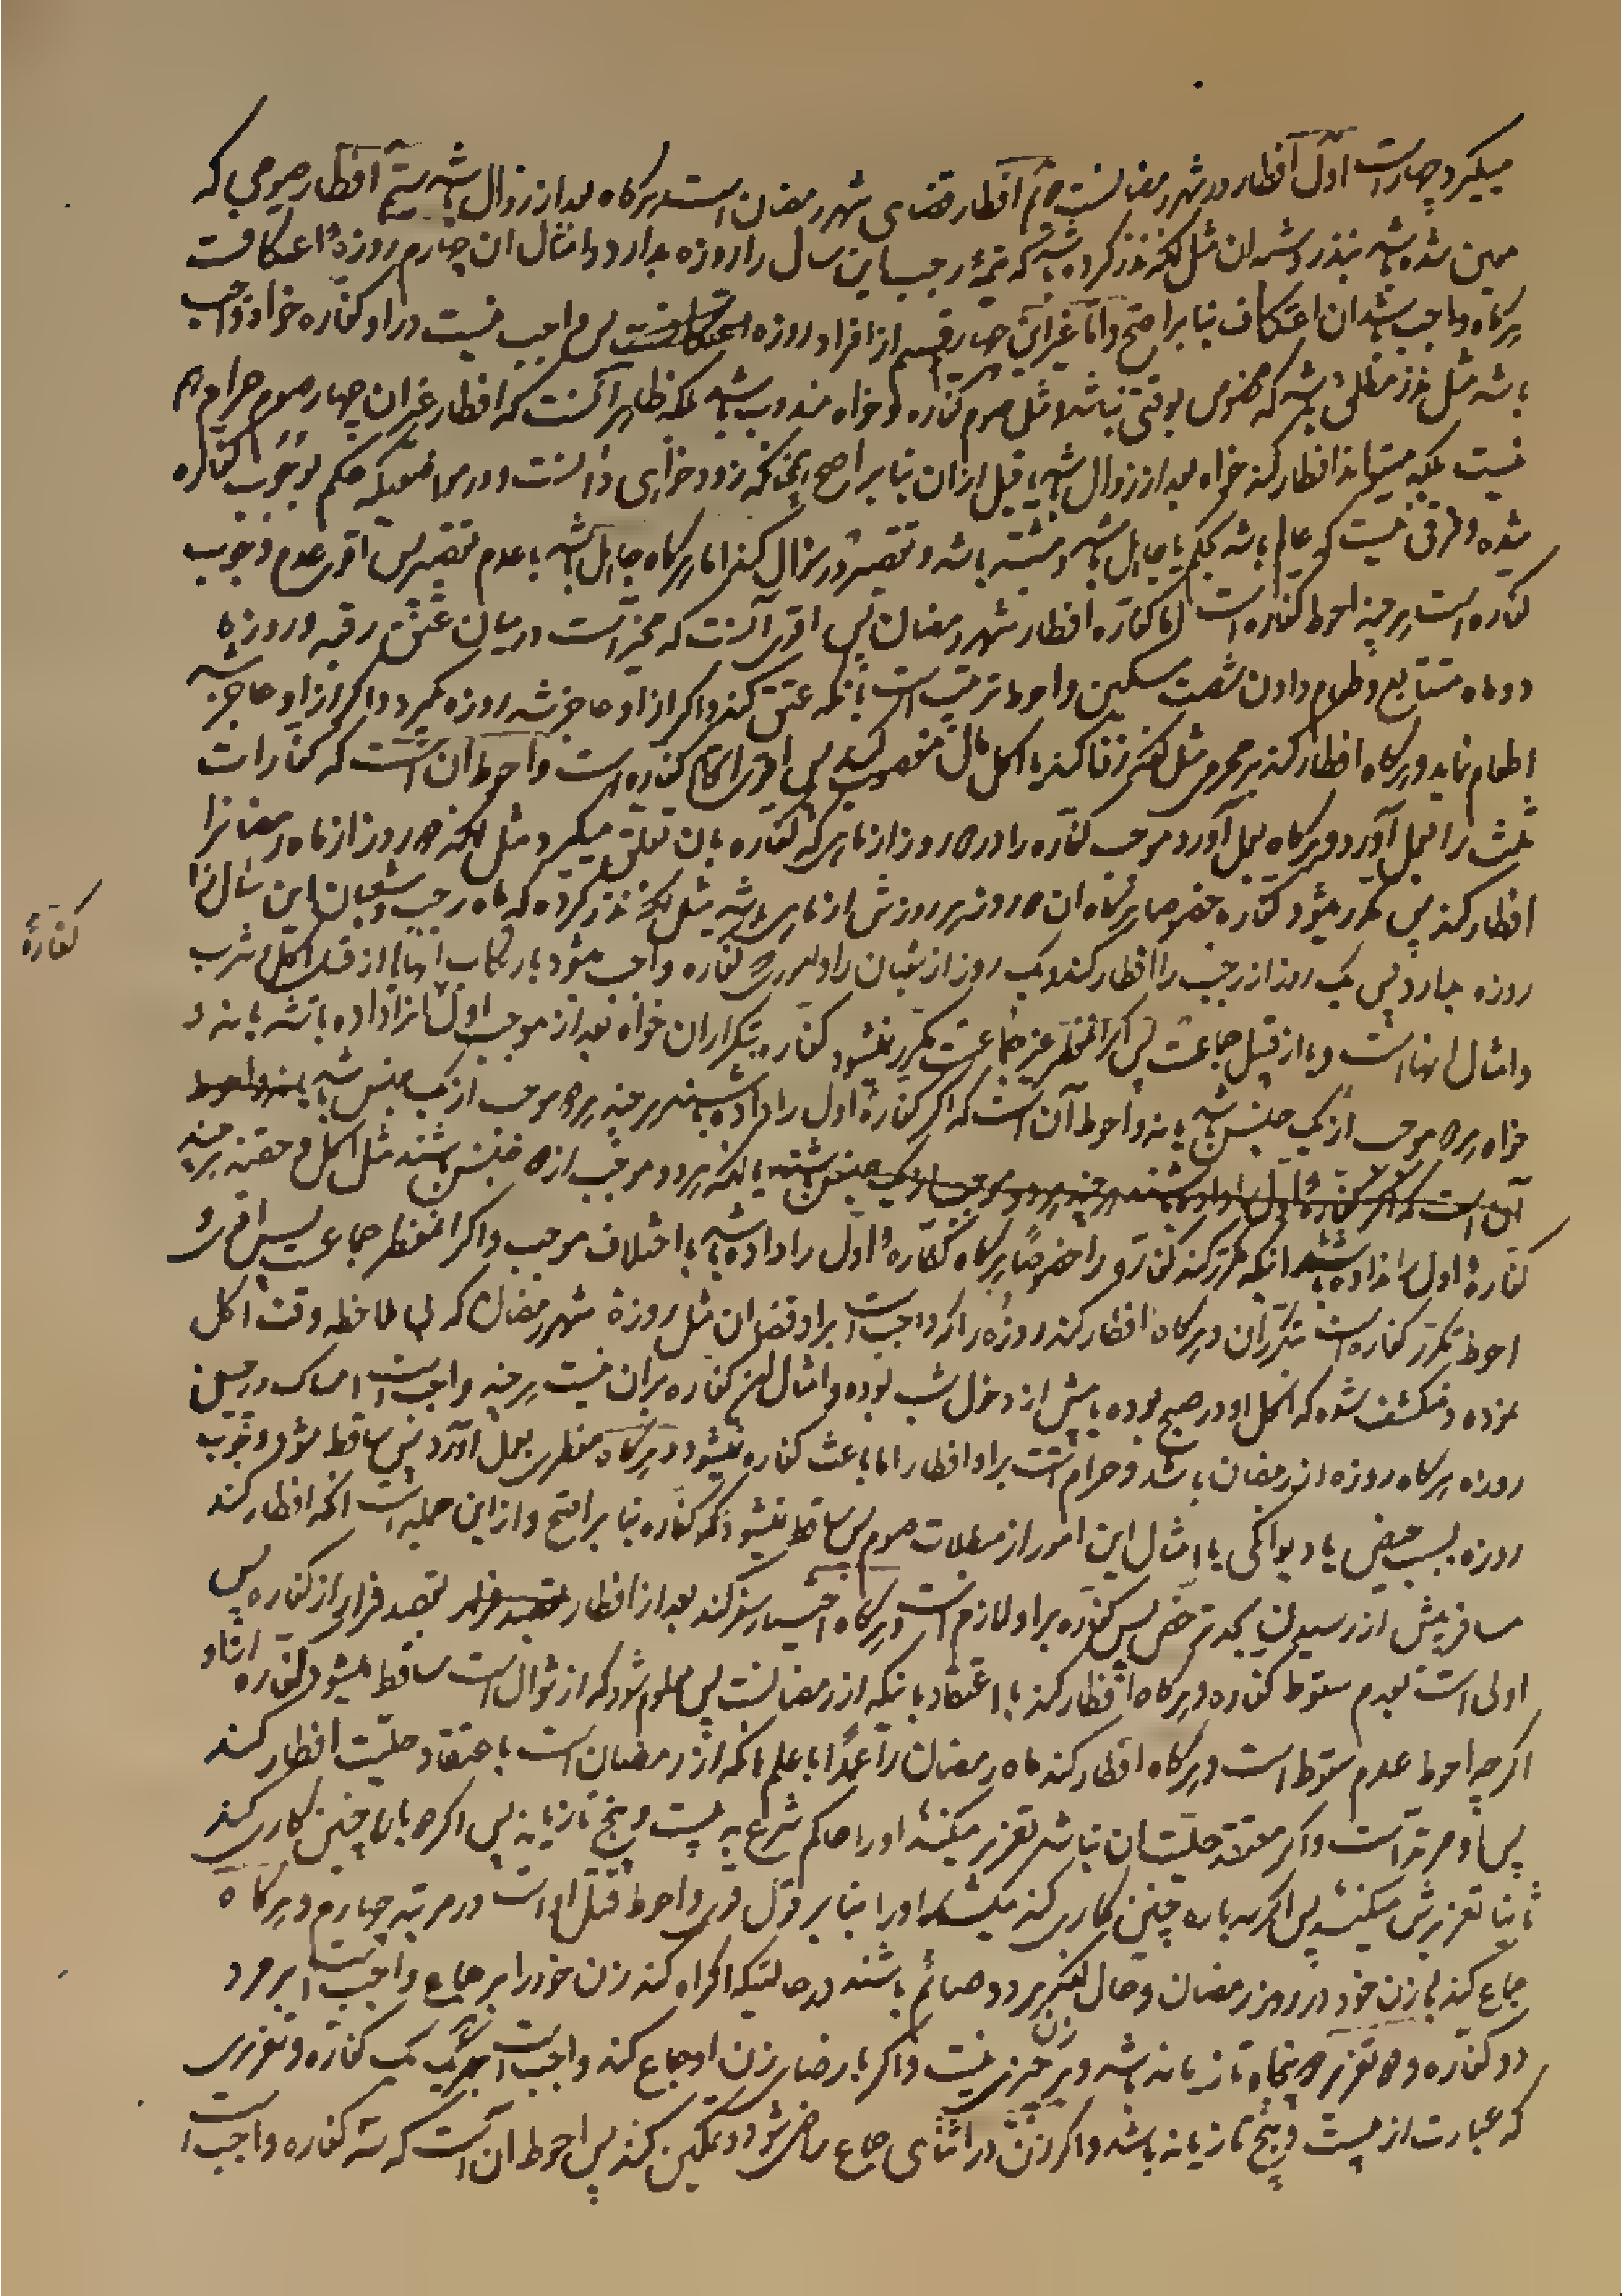 میکیرد چهار است اول افطار در شهر رمضانست دویم افطار قضای شهر رمضان است هرکاه بعد از زوال باشد سیم افطار صومی که
معین شده باشد بنذر و شبه ان مثل آنکه نذر کرده باشد که رجب این سال را روزه بدارد و امثال ان چهارم روزه اعتکافست
هرکاه واجب باشد ان اعتکاف بنا بر اصح و اما غیر این چهار قسم از افراد روزه پس واجب نیست در او کفاره خواه واجب
باشد مثل نذر مطلق باشد که مخصوص بوقتی نباشد و مثل صوم کفاره و خواه مندوب باشد بلکه ظاهر آنست که افطار غیر ان چهار صوم حرام هم
نیست بلکه میتواند افطار کند خواه بعد از زوال باشد یا قبل از ان بنا بر اصح چنانکه زود خواهی دانست و در مواضعیکه حکم بوجوب کفاره
شده فرقی نیست که عالم باشد بحکم یا جاهل باشد و تقصیر در سؤال کند اما هرکاه جاهل باشد با عدم تقصیر پس اقوی عدم وجوب
کفاره است هر چند احوط کفاره است اما کفاره افطار شهر رمضان پس اقوی آنست که مخیر است در میان عتق رقبه و روزه
دو ماه متتابع و طعام دادن شصت مسکین و احوط ترتیب است بآنکه عتق کند و اکر از او عاجز شد روزه بکیرد و اکر از او عاجز شد
اطعام نماید و هرکاه افطار کند بر محرمی مثل آنکه زنا کند یا اکل مال مغصوب کند پس اقوی کفاره است و احوط آن است که کفارات
ثلث را بعمل آورد و هرکاه بعمل آورد موجب کفاره را در دو روز از ماهی که کفاره بان تعلق میکیرد مثل آنکه دو روز از ماه رمضانرا
افطار کند پس مکرر میشود کفاره خصوصا هرکاه ان دو روز هر روزش از ماهی باشد مثل آنکه نذر کرده که ماه رجب و شعبان این سال را
روزه بدارد پس یک روز از رجب را افطار کند و یک روز از شعبان را کفاره واجب میشود بارتکاب انها یا از قبیل اکل و شرب
و امثال اینها است و یا از قبیل جماعت پس اکر افطر بغیر جماعست مکرر نمیشود کفاره بتکرار ان خواه بعد از موجب اول انرا داده باشد یا نه و
خواه هر دو موجب از یک جنس باشد یا نه و احوط آن است که اکر کفاره اول را داده باشد هر چند هر دو موجب از یک جنس باشد
یا آنکه هر دو موجب از دو جنس باشند مثل اکل و حقنه هر چند
کفاره اول را نداده باشد انکه مکرر کند کفاره را خصوصا هرکاه کفاره اول را داده باشد با اختلاف موجب و اکر افطر جماعست پس اقوی و
احوط تکرر کفاره است بتکرر ان و هرکاه افطار کند روزه را که واجب است بر او قضا ان مثل روزه شهر رمضان که بی ملاحظه وقت اکل
نموده و منکشف شود که اکل او در صبح بوده یا پیش از دخول شب بوده و امثال این کفاره بر ان نیست هر چند واجب است امساک در همین
روزه هرکاه روزه از رمضان باشد و حرام است بر او افطار اما باعث کفاره نمیشود و هرکاه مفطری بعمل آورد پس ساقط شود وجوب
روزه بسبب حیض یا دیوانکی یا امثال این امور از مبطلات صوم پس ساقط نمیشود کفاره بنا بر اصح و از این جمله است آنکه افطار کند
مسافر پیش از رسیدن بحد ترخص پس کفاره بر او لازم است و هرکاه اختیار سفر کند بعد از افطار بقصد فرار از کفاره پس
اولی است بعدم سقوط کفاره و هرکاه افطار کند با اعتقاد بانکه از رمضانست پس معلوم شود که از شوال است ساقط میشود کفاره از او
اکرچه احوط عدم سقوط است و هرکاه افطار کند ماه رمضان را عمدا با علم بانکه از رمضان است باعتقاد حلیت افطار کند
پس او مرتد است و اکر معتقد حلیت ان نباشد تعزیر میکند او را حاکم شرع به بیست و پنج تازیانه پس اکر دوباره چنین کاری کند
ثانیا تعزیرش میکند پس اکر سه باره چنین کاری کند میکشد او را بنا بر قول قوی و احوط قتل او است در مرتبه چهارم و هرکاه
جماع کند با زن خود در روز رمضان و حال آنکه هر دو صائم باشند در حالتیکه اکراه کند زن خود را بر جماع واجب است بر مرد
دو کفاره و دو تعزیر که پنجاه تازیانه باشد و بر زن چیزی نیست و اکر با رضای زن او جماع کند واجب است بر هر یک یک کفاره و تعزیری
که عبارت از بیست و پنج تازیانه باشد و اکر زن در اثنای جماع راضی شود و تمکین کند پس احوط ان است که سه کفاره واجب است
کفارهٔ